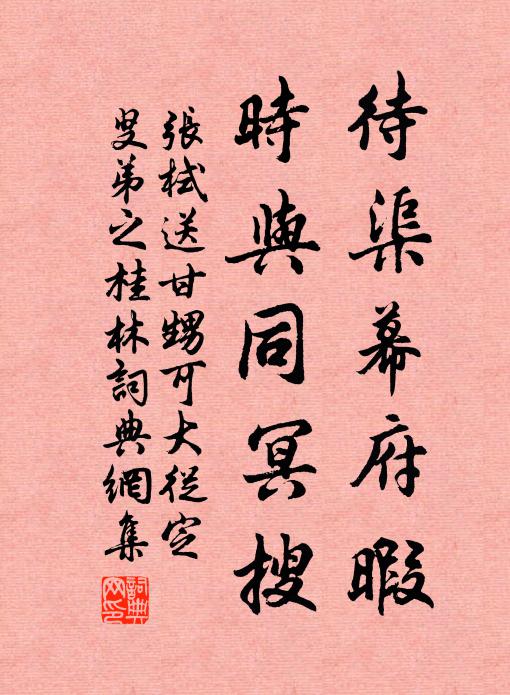 待渠幕府暇
時與同冥搜
張栻送甘甥可大從定
叟弟之桂林詞典網集
詞典